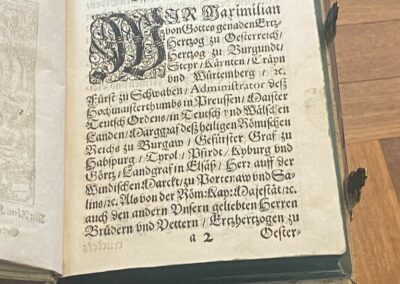 WIR Maximilian
von Gottes genaden Ertz-
Hertzog zu Oesterreich/
Hertzog zu Burgundt/
Steyr/Kärnten/Crayn
vnd Würtemberg/ ꝛc.
Fürst zu Schwaben/Administrator deß
Hochmaisterthumbs in Preussen/Maister
Teutsch Ordens/in Teutsch vnd Wälschen
Landen/Marggraf deß heiligen Römischen
Reichs zu Burgaw/ Gefürster Graf zu
Habspurg/ Tyrol/ Pfirdt/Kyburg vnd
Görtz/Landgraf in Elsäß/ Herr auff der
Windischen Marckt/zu Portenaw vnd Sa-
lins/ꝛc. Als von der Röm: Kay: Majestät/ꝛc.
auch den andern Vnsern geliebten Herren
Brüdern vnd Vettern/ Ertzhertzogen zu
a 2 Oester-